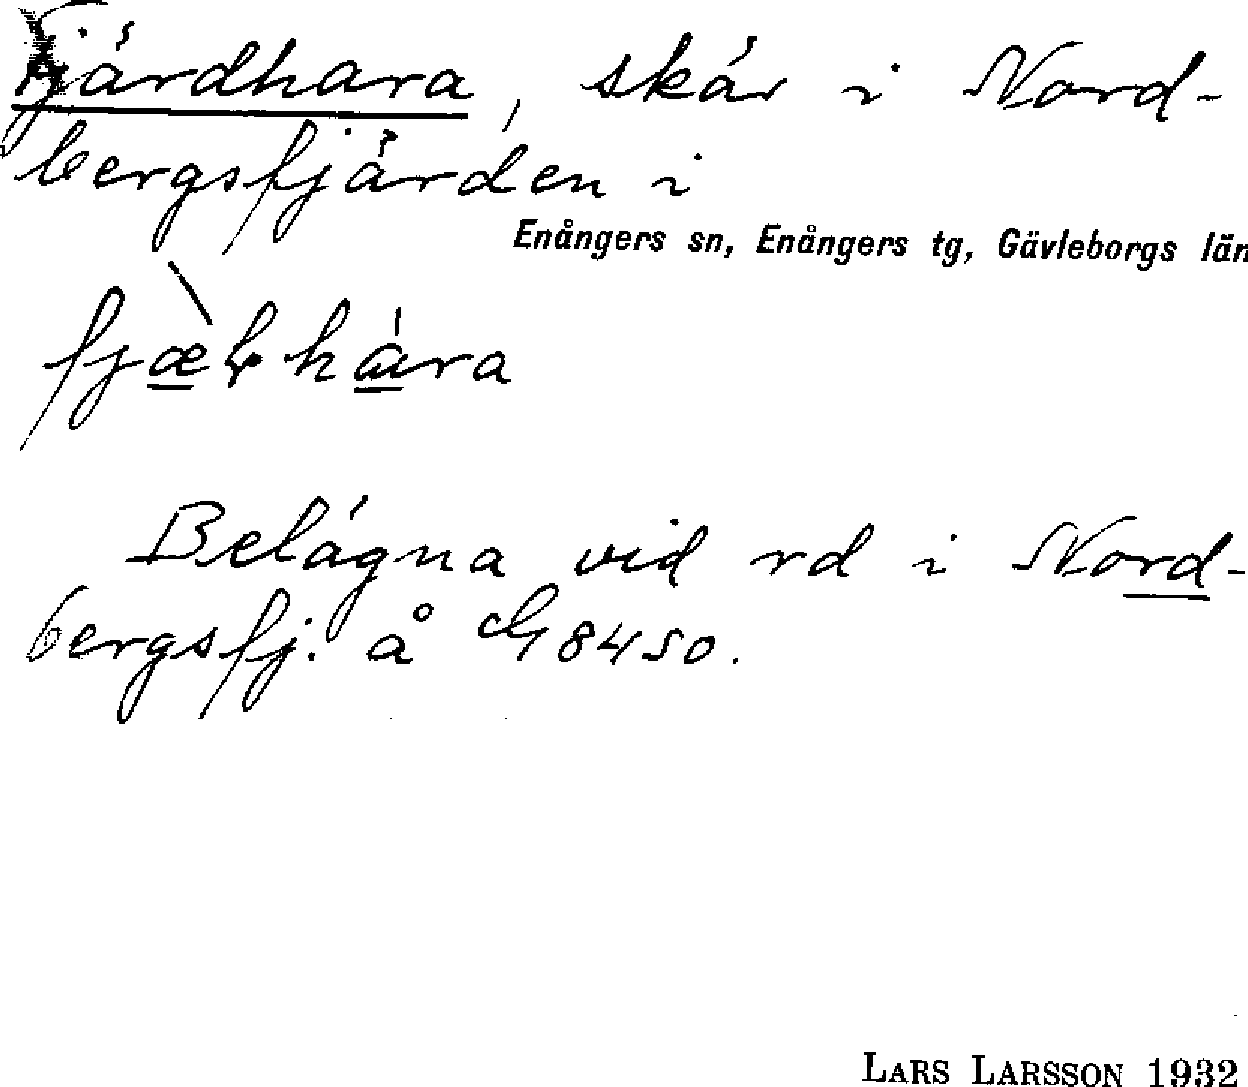 Fjärdhara, skär i Nord-
bergsfjärden i
Enångers sn, Enångers tg, Gävleborgs län
Belägna vid rd i Nord-
bergsfj. å G 8450.
LARS LARSSON 1932